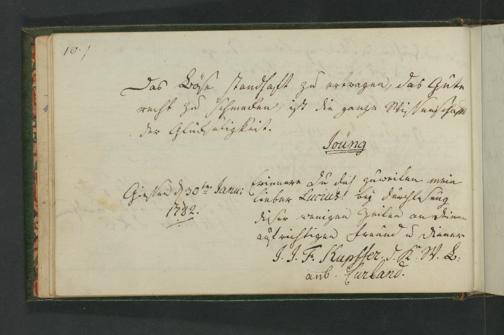 10.)
Das Böse standhaft zu ertragen, das Gute
recht zu schmecken, ist die ganze Wissenschaft
der Glückseligkeit.
Joüng
Giessen d 30ten Janu:
1782.
Erinnere Du dich zuweilen mein
lieber Lucius! bey Durchlesung
dieser wenigen Zeilen an Deinen
aufrichtigen Freund u. Diener
J. J. F. Kupffer, d. K. W. B.
aus Curland.